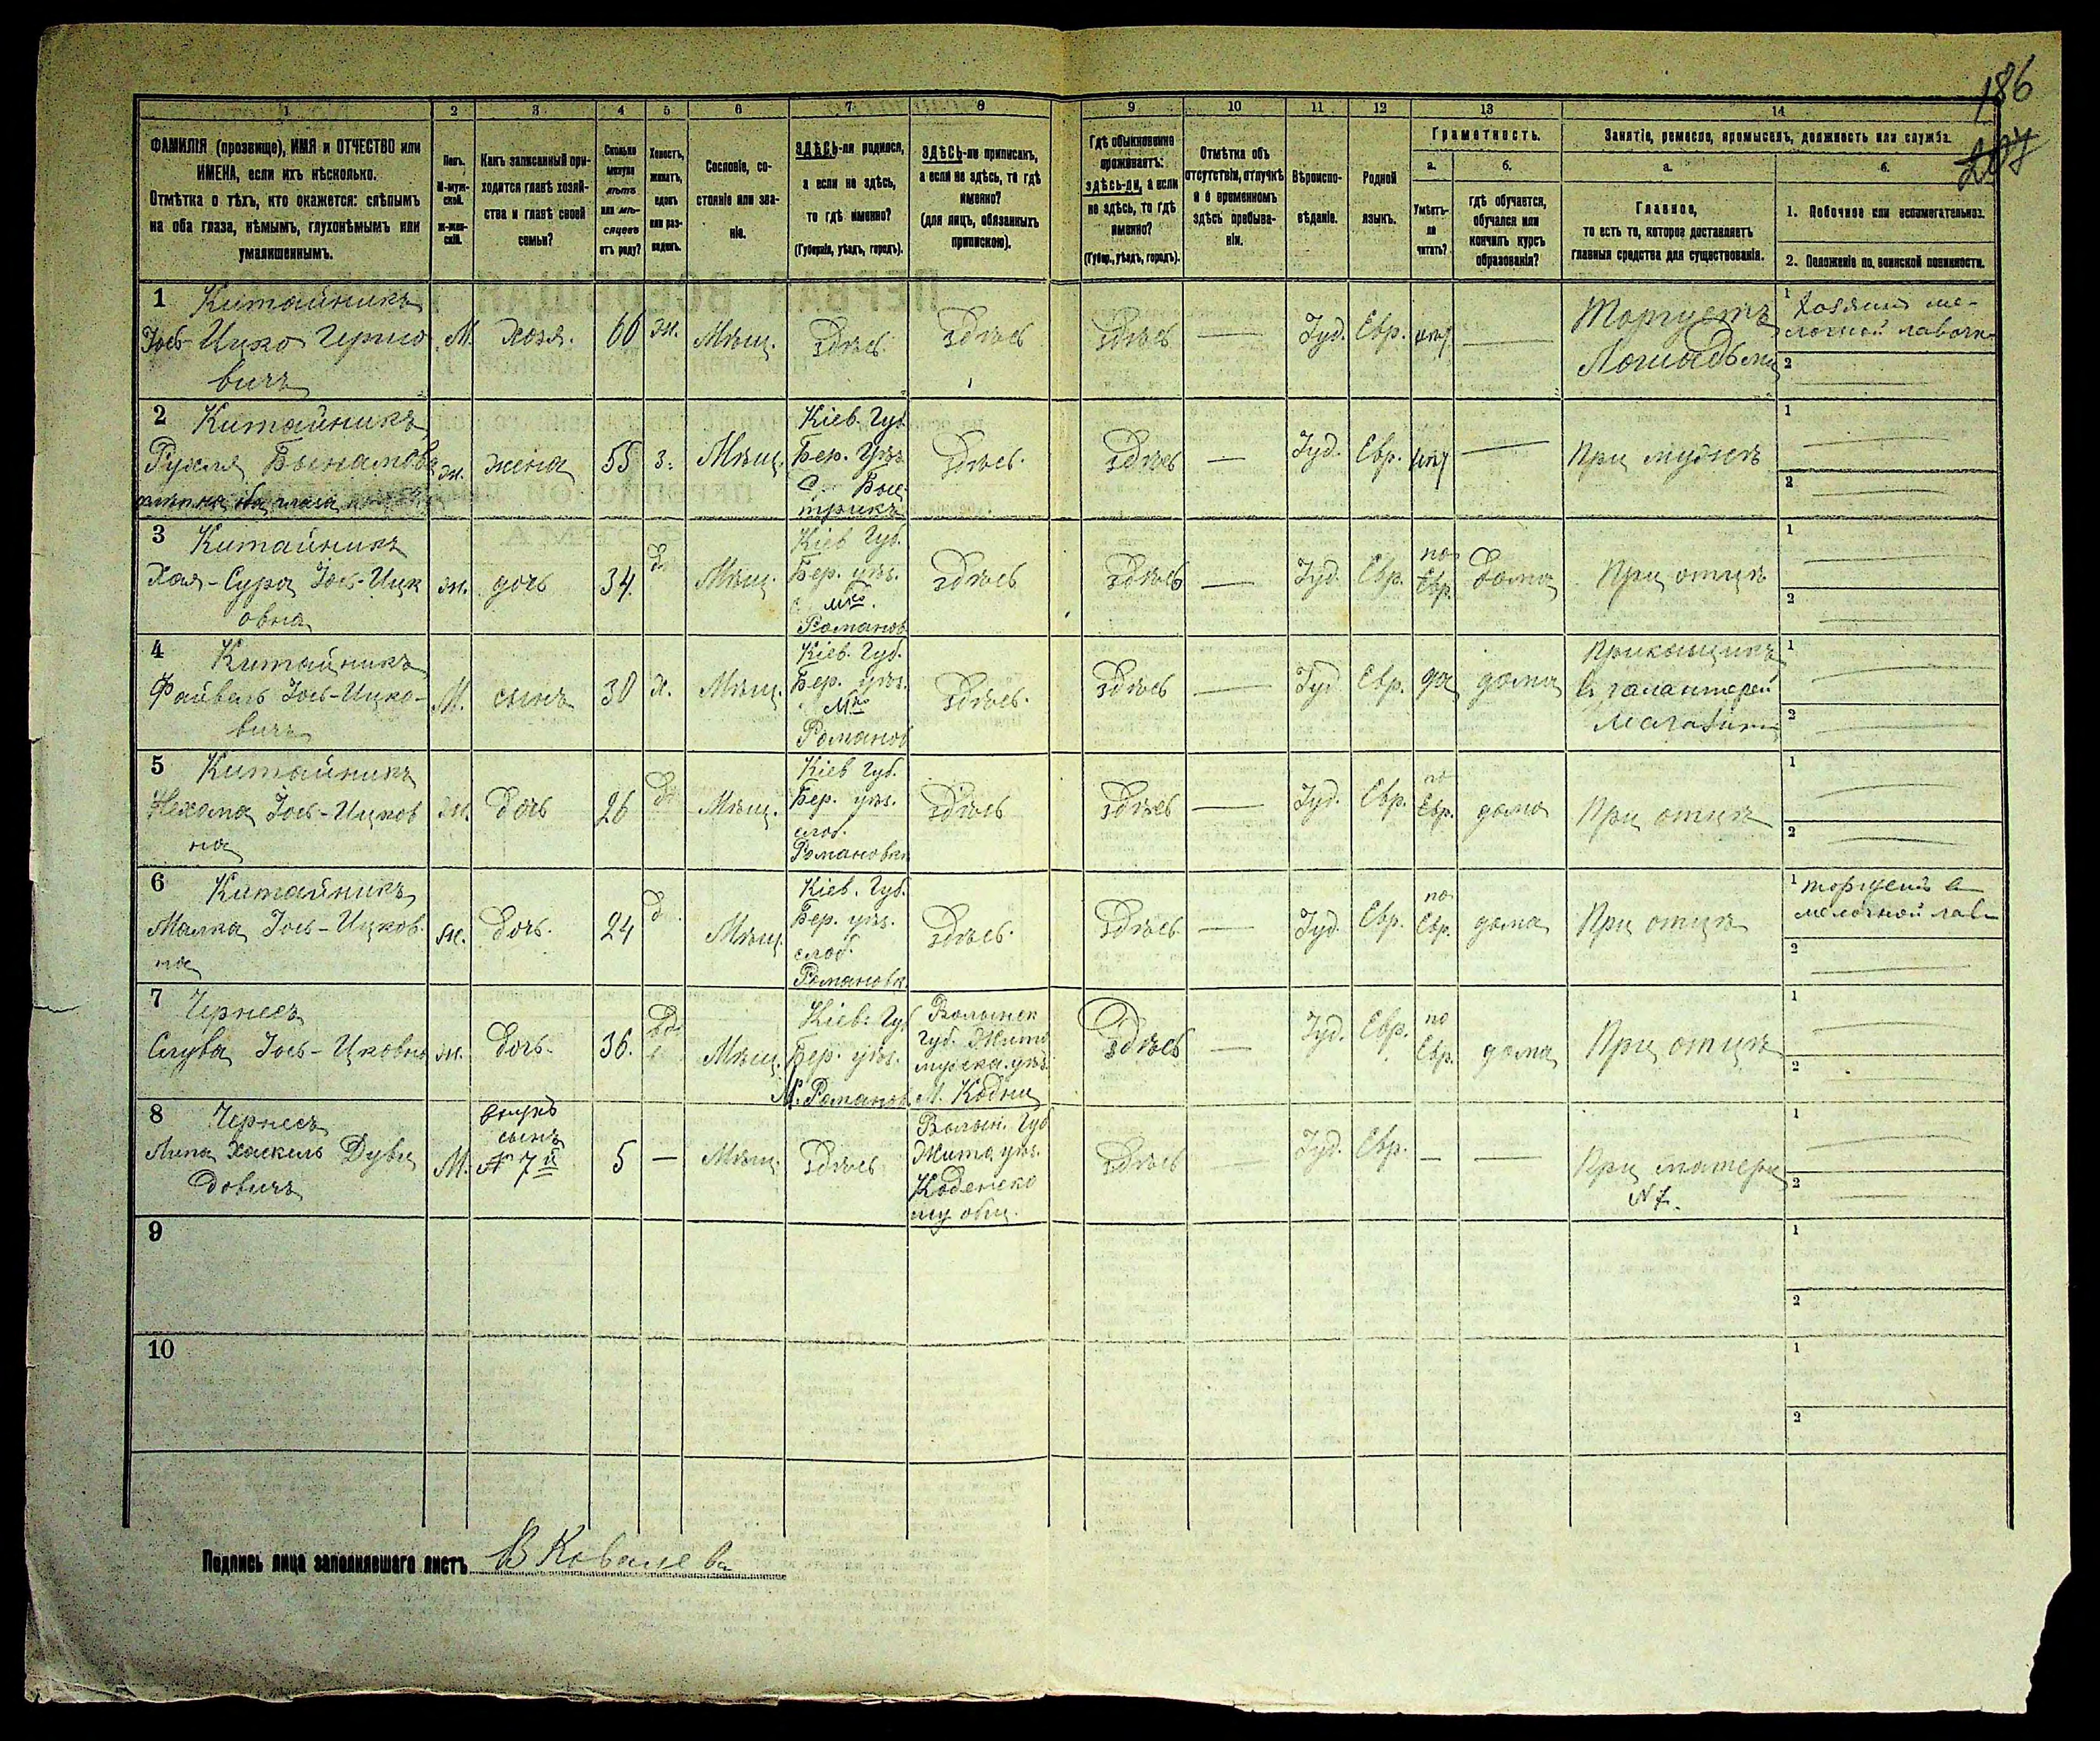 186
207
1 2 3 4 5 6 7 8 9 10 11 12 13 14
ФАМИЛІЯ (прозвище), ИМЯ и ОТЧЕСТВО или
ИМЕНА, если ихъ нѣсколько.
Отмѣтка о тѣхъ, кто окажется: слѣпымъ
на оба глаза, нѣмымъ, глухонѣмымъ или
умалишеннымъ.
Полъ.
М-муж-
ской.
ж-жен-
скій.
Какъ записанный при-
ходится главѣ хозяй-
ства и главѣ своей
семьи?
Сколько
минуло
лѣтъ
или мѣ-
сяцевъ
отъ роду?
Холостъ,
женатъ,
вдовъ
или раз-
веденъ.
Сословіе, со-
стояніе или зва-
ніе.
ЗДѢСЬ-ли родился,
а если не здѣсь,
то гдѣ именно?
(Губернія, уѣздъ, городъ).
ЗДѢСЬ-ли приписанъ,
а если не здѣсь, то гдѣ
именно?
(для лицъ, обязанныхъ
припискою).
Гдѣ обыкновенно
проживаетъ:
здѣсь-ли, а если
не здѣсь, то гдѣ
именно?
(Губер., уѣздъ, городъ).
Отмѣтка объ
отсутствіи, отлучкѣ
и о временномъ
здѣсь пребыва-
ніи.
Вѣроиспо-
вѣданіе.
Родной
языкъ.
Грамотность.
а.
Умѣетъ-
ли
читать?
б.
гдѣ обучается,
обучался или
кончилъ курсъ
образованія?
Занятіе, ремесло, промыселъ, должность или служба.
а.
Главное,
то есть то, которое доставляетъ
главныя средства для существованія.
б.
1. Побочное или вспомогательное.
2. Положеніе по воинской повинности.
1 Китайникъ
Іось-Ицко Гершо
вичъ
М. хозя. 60 ж. Мѣщ. Здѣсь Здѣсь Здѣсь — Іуд. Евр. — Торгуетъ
Лошадьми
1 Хозяинъ ме-
лочной лавочк
2
2 Китайникъ
Рухля
ж. жена 55 з. Мѣщ.
Кіев. Губ
Бер. Уѣз
С.
Здѣсь. Здѣсь — Іуд. Евр. — При мужѣ
1
2
3 Китайникъ
Хая-Сура Іось-Ицк
овна
ж. дочь 34 д Мѣщ.
Кіев Губ.
Бер. уѣз.
мко.
Романов
Здѣсь Здѣсь — Іуд. Евр. по
Евр. дома При отцѣ
1
2
4 Китайникъ
Файвель Іось-Ицко-
вичъ
М. сынъ 30 х. Мѣщ.
Кіев. Губ.
Бер. уѣз.
мко
Романов
Здѣсь. Здѣсь — Іуд Евр. да дома
Прикащикъ
в галантерей
Магазин
1
2
5 Китайникъ
Нехама Іось-Ицков
на
ж. дочь 26 д Мѣщ.
Кіев Губ.
Бер. уѣз.
слоб.
Романовки
Здѣсь Здѣсь — Іуд. Евр. по
Евр. дома При отцѣ
1
2
6 Китайникъ
Малка Іось-Ицков.
на
ж. дочь. 24 д Мѣщ
Кіев. Губ.
Бер. уѣз.
слоб.
Романовк
Здѣсь. Здѣсь — Іуд. Евр. по
Евр. дома При отцѣ
1 торгуетъ в
мелочной лав
2
7 Чернесъ
Слува Іось-Ицковна
ж. дочь. 36. вд Мѣщ.
Кіев. Губ
Бер. уѣз.
М. Романов
Волынск
губ. Жито
мирска. уѣз.
М. Кодни
Здѣсь — Іуд. Евр. по
Евр. дома При отцѣ
1
2
8 Чернесъ
Липа Хаскель Дуви
довичъ
М. внукъ
сынъ
№ 7й
5 — Мѣщ. Здѣсь
Волын. Губ
Жито уѣз.
Коденско
му общ.
Здѣсь — Іуд. Евр. — — При матери
№ 7.
1
2
9
1
2
10
1
2
Подпись лица заполнявшаго листъ В Ковалева